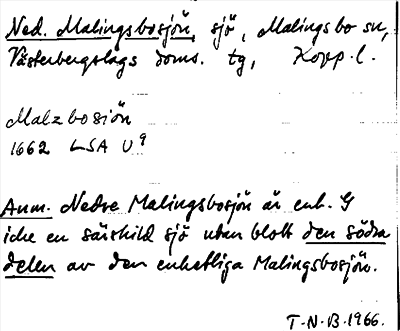 Ned. Malingsbosjön, sjö, Malingsbo sn,
Västerbergslags doms. tg, Kopp. l.
Malzbosiön
1662 LSA U 9
Anm. Nedre Malingsbosjön är enl. G
icke en särskild sjö utan blott den södra
delen av den enhetliga Malingsbosjön.
T.N.B. 1966.